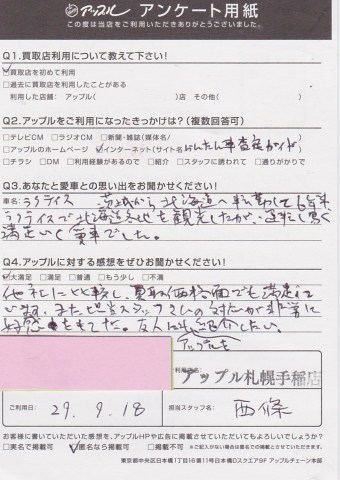 アップル アンケート用紙
この度は当店をご利用いただきありがとうございました。
Q1.買取店利用について教えて下さい!
☑買取店を初めて利用
□過去に買取店を利用したことがある
利用した店舗: アップル( )店 その他( )
Q2.アップルをご利用になったきっかけは?(複数回答可)
□テレビCM □ラジオCM □新聞・雑誌(媒体名/ )
□アップルのホームページ ☑インターネット(サイト名/かんたん車査定ガイド)
□チラシ □DM □利用経験があるので □紹介 □スタッフに誘われて □通りがかりで
Q3.あなたと愛車との思い出をお聞かせください!
車名: ラクティス 茨城から北海道へ転勤して6年半
ラクティスで北海道各地を観光したが、運転し易く
満足いく愛車でした。
Q4.アップルに対する感想をぜひお聞かせください!
☑大満足 □満足 □普通 □もう少し □不満
他社に比較し、買取価格面でも満足して
います。また、担当スタッフさんの対応が非常に
好感をもてた。友人にも紹介したい。
アップルを
ご利用店名: アップル札幌手稲店
ご利用日 29.9.18 担当スタッフ名: 西條
お客様に書いていただいた感想を、アップルHPや広告に掲載させていただいてもよろしいでしょうか?
□実名で掲載可 ☑匿名なら掲載可 □掲載不可 ※ご記入がない場合は匿名での掲載とさせていただきます。
東京都中央区日本橋1丁目16番11号日本橋Dスクエア9F アップルチェーン本部